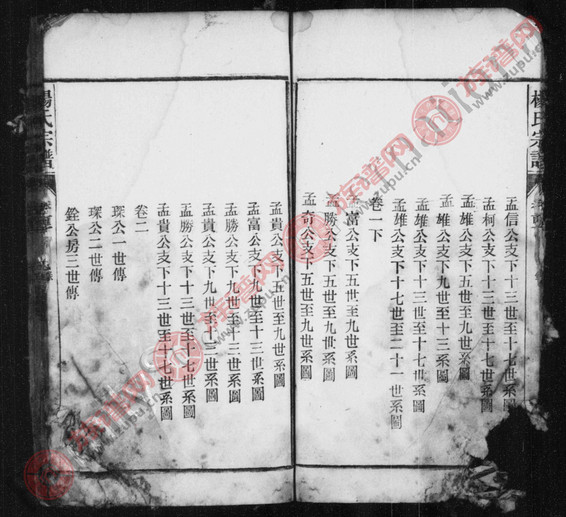 楊氏宗譜
孟信公支下十三世至十七世系圖
孟柯公支下九世至十三世系圖
孟雄公支下五世至九世系圖
孟雄公支下九世至十三系圖
孟雄公支下十三世至十七世系圖
孟雄公支下十七世至二十一世系圖
卷一下
孟富公支下五世至九世系圖
孟勝公支下五世至九世系圖
孟奇公支下五世至九世系圖
孟貴公支下五世至九世系圖
孟富公支下九世至十三世系圖
孟勝公支下九世至十三世系圖
孟貴公支下九世至十三世系圖
孟勝公支下十三世至十七世系圖
孟貴公支下十三世至十七世系圖
卷二
琛公一世傳
琛公二世傳
銓公房三世傳
楊氏宗譜
族譜网
www.zupu.cn